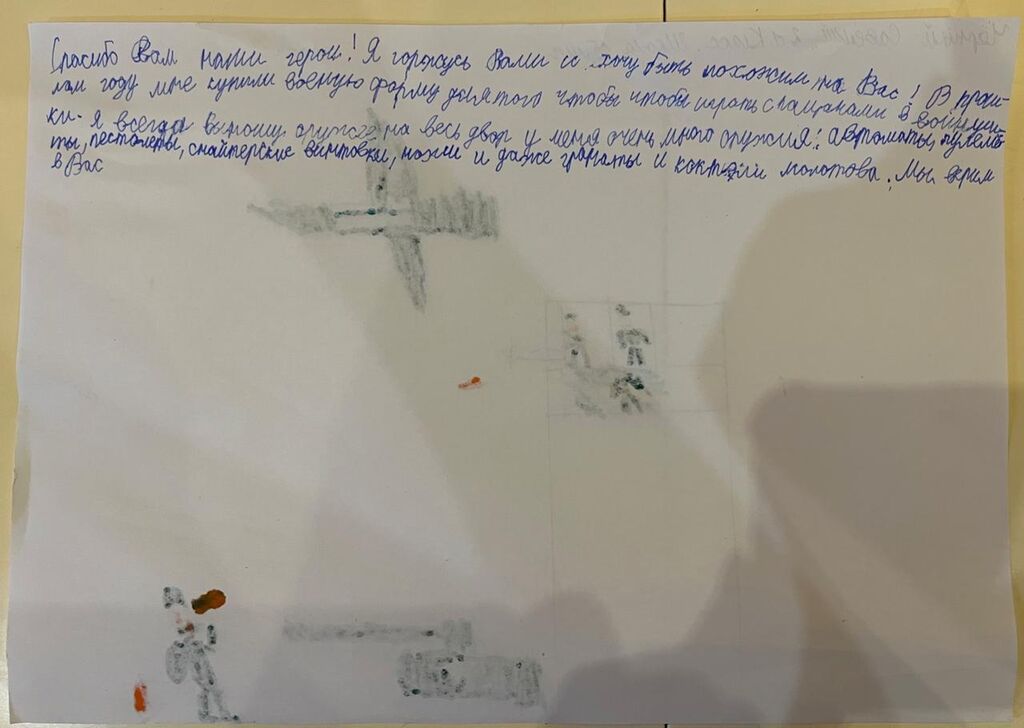 Спасибо Вам наши герои! Я горжусь Вами и хочу быть похожим на Вас! В прош-
лом году мне купили военную форму для того чтобы чтобы играть с пацанами в войнуш-
ки. я всегда выношу оружие на весь двор у меня очень много оружия: автоматы, пулемё-
ты, пестолеты, снайперские винтовки, ножи и даже гранаты и коктэйли молотова. Мы верим
в Вас